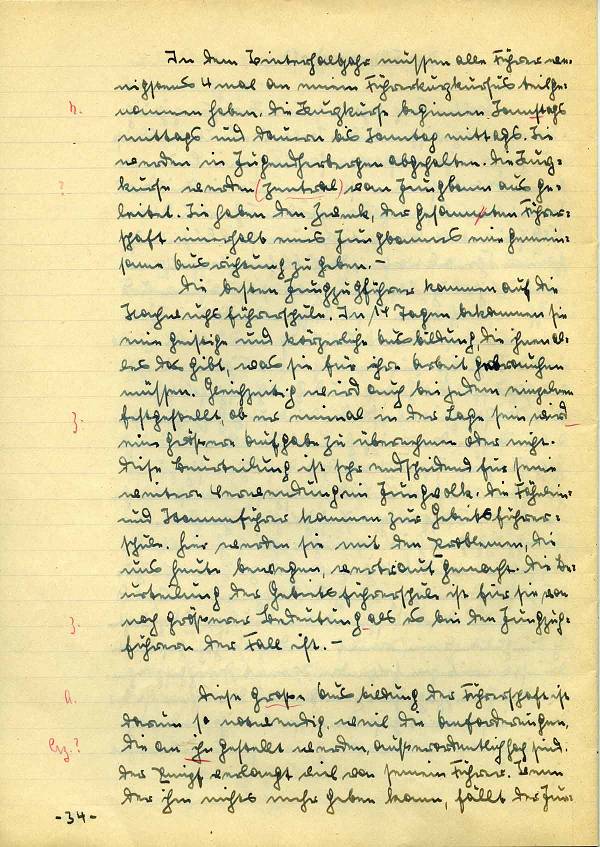 In dem Winterhalbjahr müssen alle Führer we-
nigstens 4 mal an einem Führerkurzkursus teilge-
nommen haben. Die Kurzkurse beginnen Samstags
mittags und dauern bis Sonntag mittags. Sie
werden in Jugendherbergen abgehalten. Die Kurz-
kurse werden (zentral) vom Jungbann aus ge-
leitet. Sie haben den Zweck, der gesammten Führer-
schaft innerhalb eines Jungbannes eine gemein-
same Ausrichtung zu geben. –
Die besten Jungzugführer kommen auf die
Nachwuchsführerschule. In 14 Tagen bekommen sie
eine geistige und körperliche Ausbildung, die ihnen al-
les das gibt, was sie für ihre Arbeit gebrauchen
müssen. Gleichzeitig wird auch bei jedem einzelnen
festgestellt, ob er einmal in der Lage sein wird
eine größere Aufgabe zu übernehmen oder nicht.
Diese Beurteilung ist sehr endscheidend für seine
weitere Verwendung im Jungvolk. Die Fähnlein-
und Stammführer kommen zur Gebietsführer-
schule. Hier werden sie mit den Problemen, die
uns heute bewegen, vertraut gemacht. Die Be-
urteilung der Gebietsführerschule ist für sie von
noch größerer Bedeutung als es bei den Jungzug-
führern der Fall ist. –
Diese große Ausbildung der Führerschaft ist
darum so notwendig, weil die Anforderungen,
die an ihn gestellt werden, außerordentlich hoch sind.
Der Pimpf verlangt viel von seinem Führer. Wenn
der ihm nichts mehr geben kann, fällt der Jun-
- 34 -